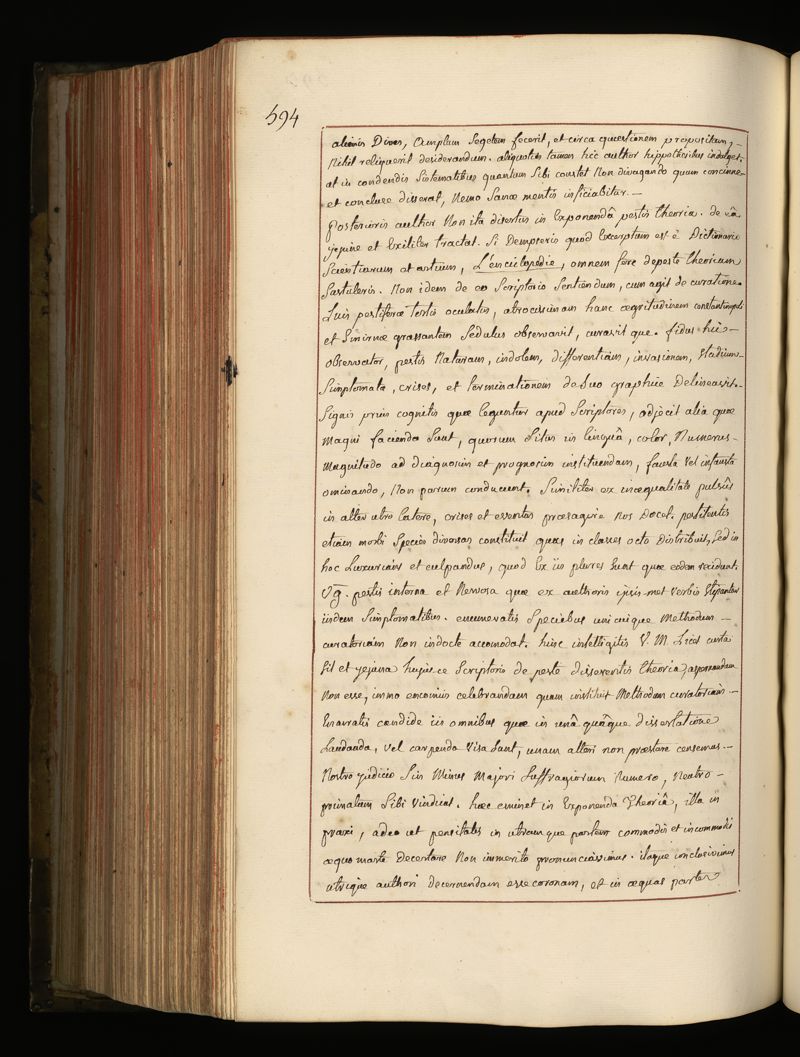 594
alienis Dives, amplam Segetem fecerit, et circa quæstionem propositam, -
Nihil reliquerit desiderandum. aliquoties tamen hic author hippothesibus indulget.
at in condendis Sistematibus quantum Sibi constet Non divagando quam concinne
et concluse disserat, Nemo Sanæ mentis inficiabitur. -
Posterioris author Non ita disertus in Exponendâ pestis theoria. de eâ
jejune et Exiliter tractat. Si Dempseris quod Excerptum est è Dictionario
Scientiarum et artium, L'enciclopedie, omnem fere de peste theoriam
Sustuleris. Non idem de eo Scriptorio Sentiendum, cum agit de curatione.
Luis pestiferæ testis oculatus, atrocissimam hanc ægritudinem constantinopoli
et Smirnæ grassantem Sedulus observavit, curavit que. fidus hic -
observator, pestis Naturam, indolem, differentiam, invasionem, Stadium
Simptomata, crises, et terminationem de Suo graphice Delineavit.
Signis prius cognitis quæ leguntur apud Scriptores, adjecit alia quæ
magni facienda Sunt, quorum Situs in linguâ, color, Numerus -
Magnitudo ad diagnosim et prognosim instituendam, fausta vel infausta
ominando, Non parum conducunt. Similiter ex inæqualitate pulsûs
in alter utro latere, crises et eventus præsagire nos Docet. pestilentis
etiam morbi Species diversas constituit quas in classes octo Distribuit, Sed in
hoc Luxurians et culpandus, quod Ex iis plures Sunt quæ eodem recidunt.
Vg. pestis interna et Nervosa quæ ex authoris ipsis-met verbis Stipantur
iisdem Simptomatibus. enumeratis Speciebus uni cuique Methodum -
curatoriam Non indocte accomodat. hinc intelligitis V. M. Licet curta
Sit et jejuna hujus ce Scriptoris de peste disserentis theoria, aspernandam
Non esse, immo encomiis celebrandam quam instituit Methodum curatoriam -
Enarratis candide iis omnibus quæ in unâ quâque dissertatione
Laudanda, vel carpenda Visa Sunt, unam alteri non præstare censemus. -
Nostro judicio Sin Minus Majori Suffragiorum Numero, Neutro -
primatum Sibi Vindicat. hæc eminet in Exponenda Theoriâ, illa in
praxi, adeo ut pensitatis in utramque partem commodis et incommodis
æquo marte Decertare Non immerito pronunciassimus. itaque conclusimus
utrique authori decernendam esse coronam, et in æquas partes